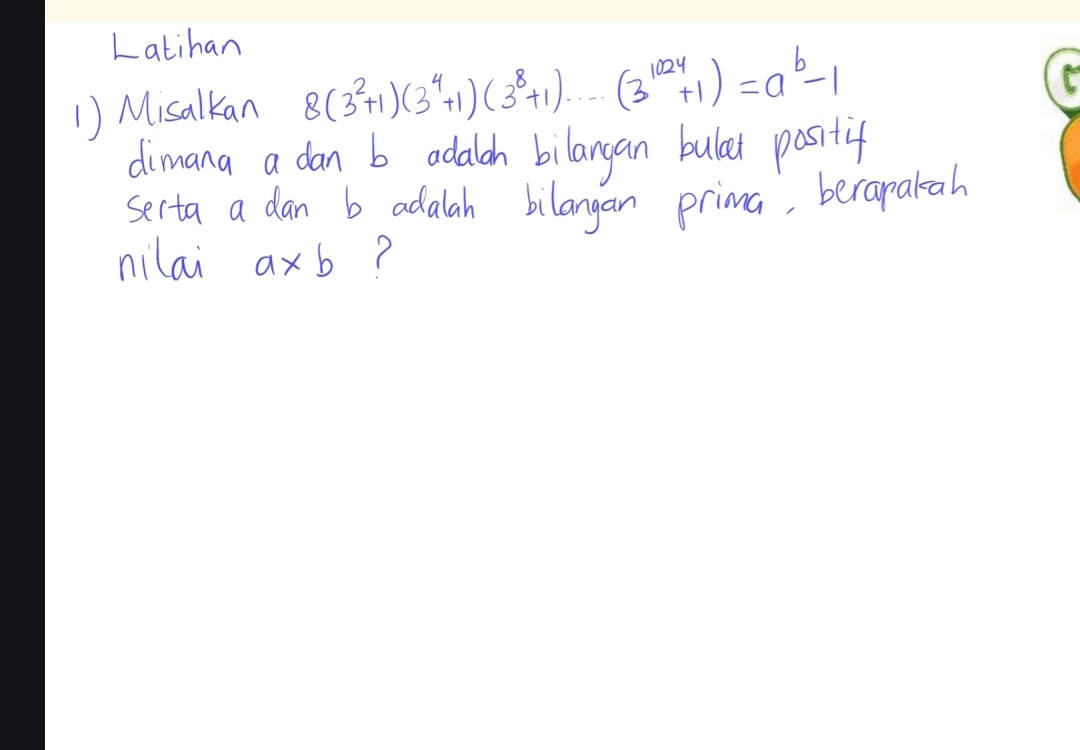 Latihan
1) Misalkan 8(3²+1)(3⁴+1)(3⁸+1)..... (3¹⁰²⁴+1) = aᵇ-1
dimana a dan b adalah bilangan bulat positif
serta a dan b adalah bilangan prima, berapakah
nilai a x b ?